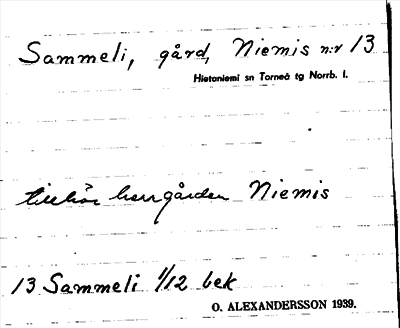 Sammeli, gård, Niemis n:r 13
Hietaniemi sn Torneå tg Norrb. l.
tillhör herrgården Niemis
13 Sammeli 1/12 bek
O. ALEXANDERSSON 1939.